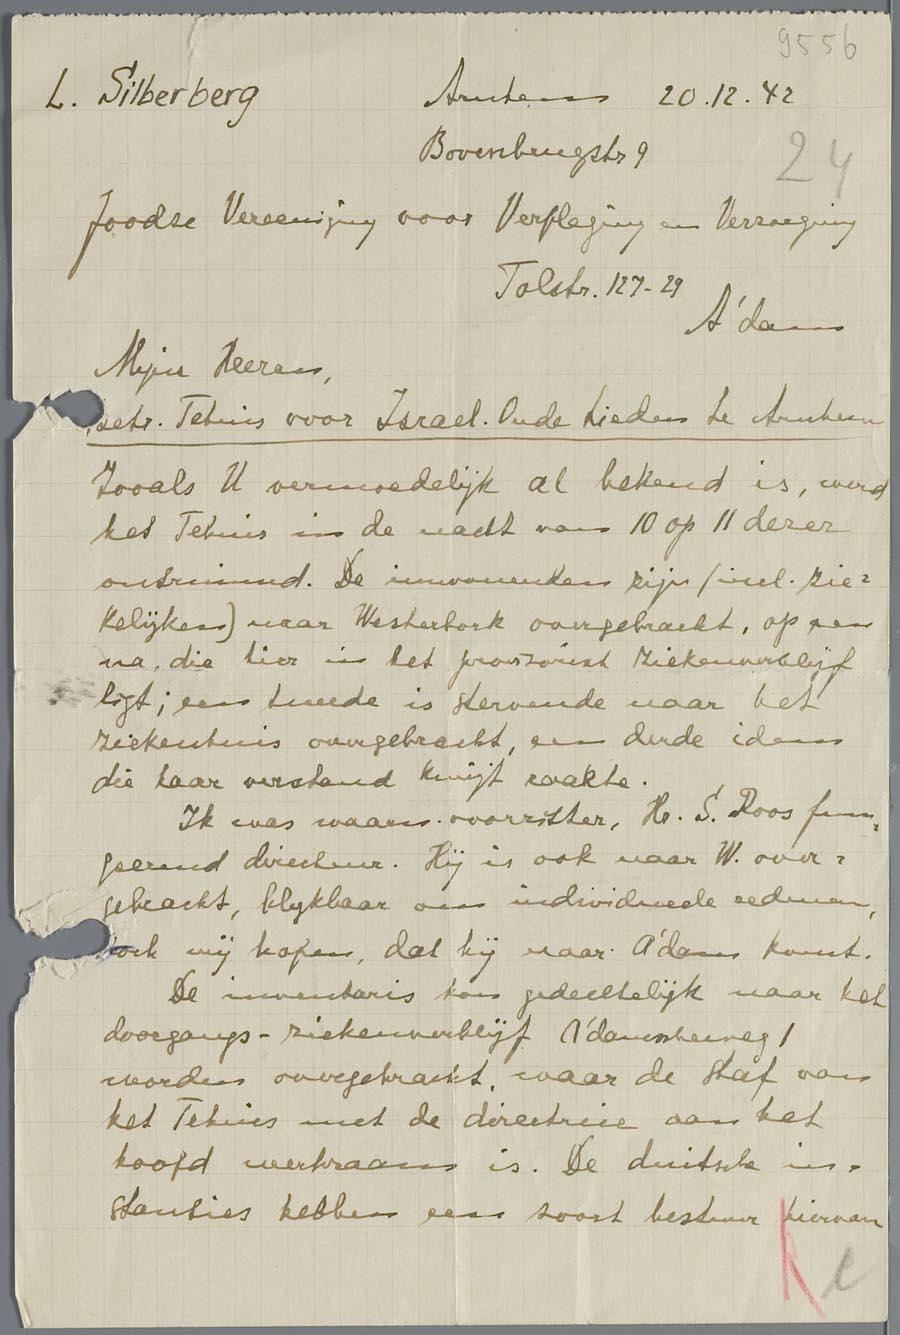 9556
L. Silberberg Arnhem 20.12.42
Bovenbrugstr 9
24
Joodse Vereeniging voor Verpleging en Verzorging
Tolstr. 127-29
A'dam
Mijne Heeren,
betr. Tehuis voor Israel. Oude Lieden te Arnhem
Zooals U vermoedelijk al bekend is, werd
het Tehuis in de nacht van 10 op 11 dezer
ontruimd. De inwonenden zijn (incl. zie=
kelijken) naar Westerbork overgebracht, op een
na, die hier in het provisorisch ziekenverblijf
ligt; een tweede is stervende naar het
ziekenhuis overgebracht, een derde idem
die haar verstand kwijt raakte.
Ik was waarn. voorzitter, Hr. S. Roos fun=
geerend directeur. Hij is ook naar W. over=
gebracht, blykbaar om individueele redenen,
doch wij hopen, dat hij naar A'dam komt.
De inventaris kon gedeeltelijk naar het
doorgangs-ziekenverblijf A'damscheweg 1
worden overgebracht, waar de staf van
het Tehuis met de directrice aan het
hoofd werkzaam is. De duitsche in=
stanties hebben een soort bestuur hiervan